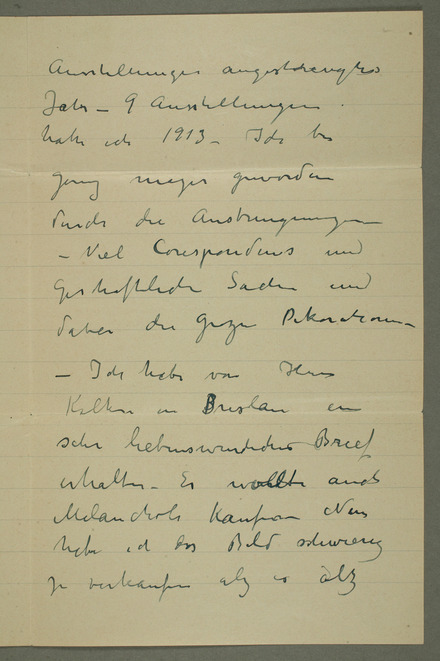 Ausstellunger angestrengtes
Jahr – 9 Ausstellungen.
habe ich 1913 – Ich bin
ganz mager geworden
durch die Anstrengungen
– Viel Corespondens und
Geshaftliche Sachen und
dabei die große Dekorationen –
– Ich habe von Herrn
in Breslau ein
sehr liebenswürdiches Brief
erhalten – Er wollte auch
Melancholi kaufen
habe ich das Bild schwierig
zu verkaufen als